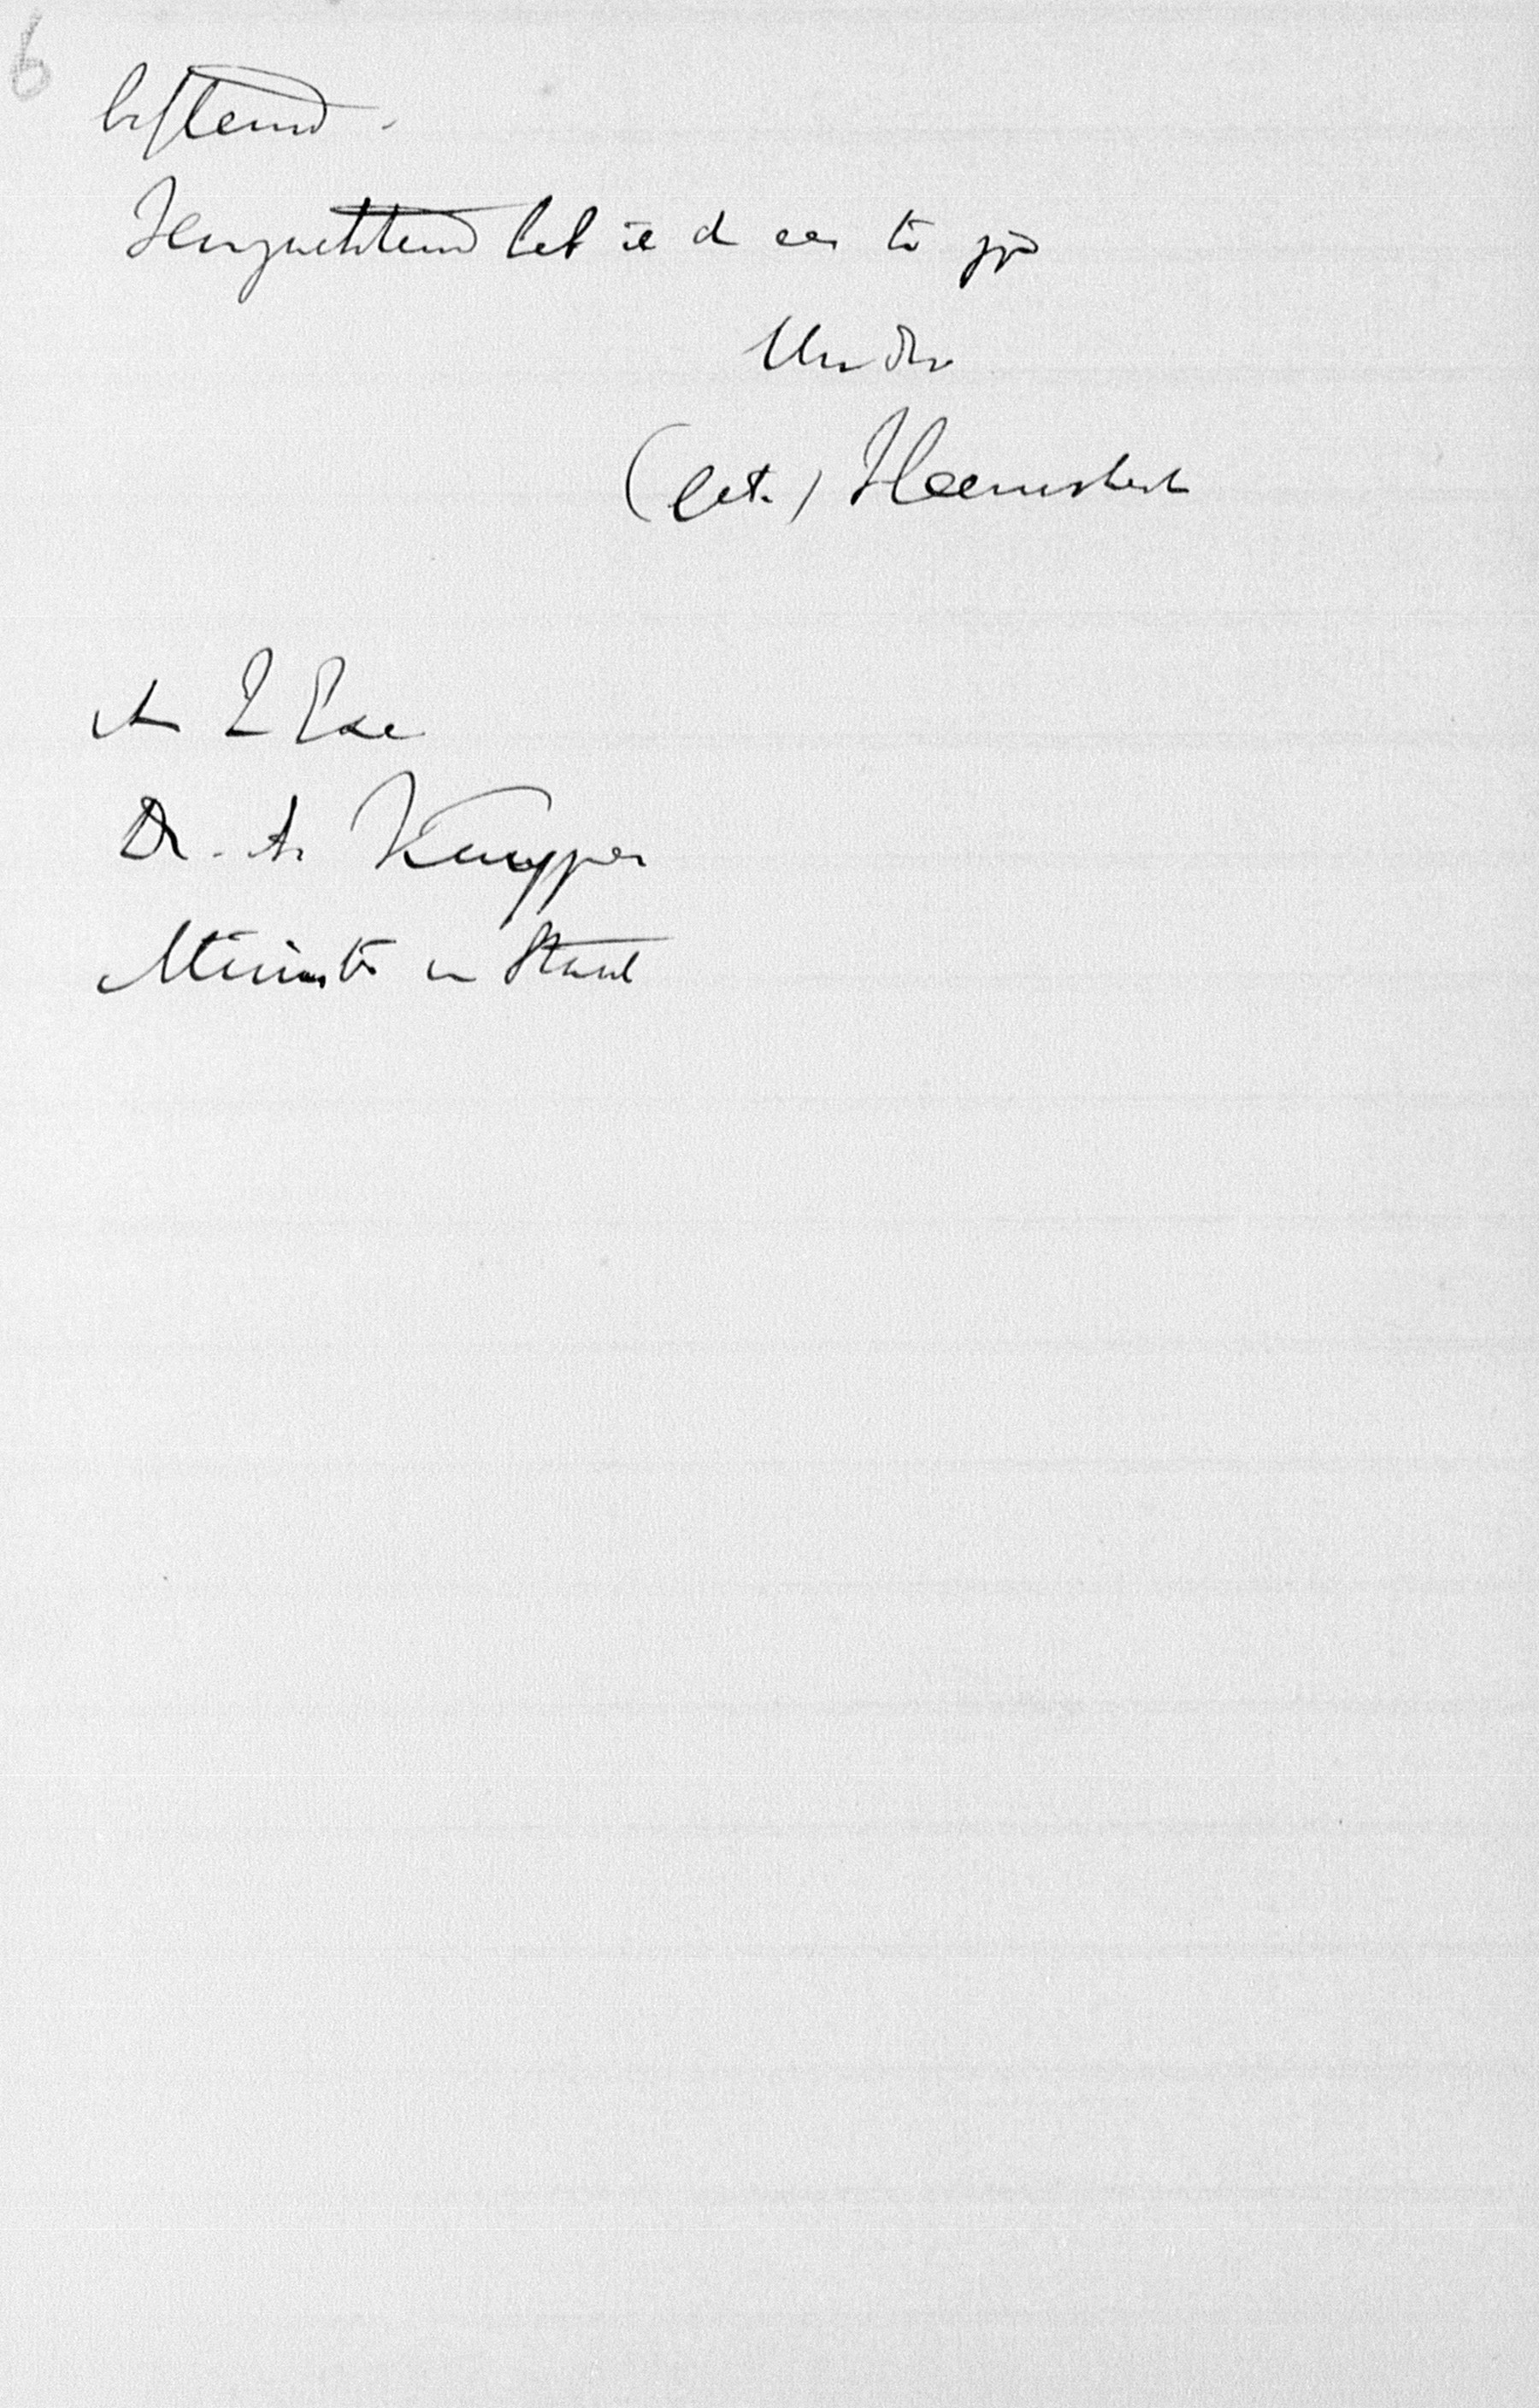 6
bestemd.
Hoogachtend heb ik d eer te zijn
Uw Dw
(get.) Heemskerk
A Z Exc
Dr. A. Kuyper
Minister v Staat